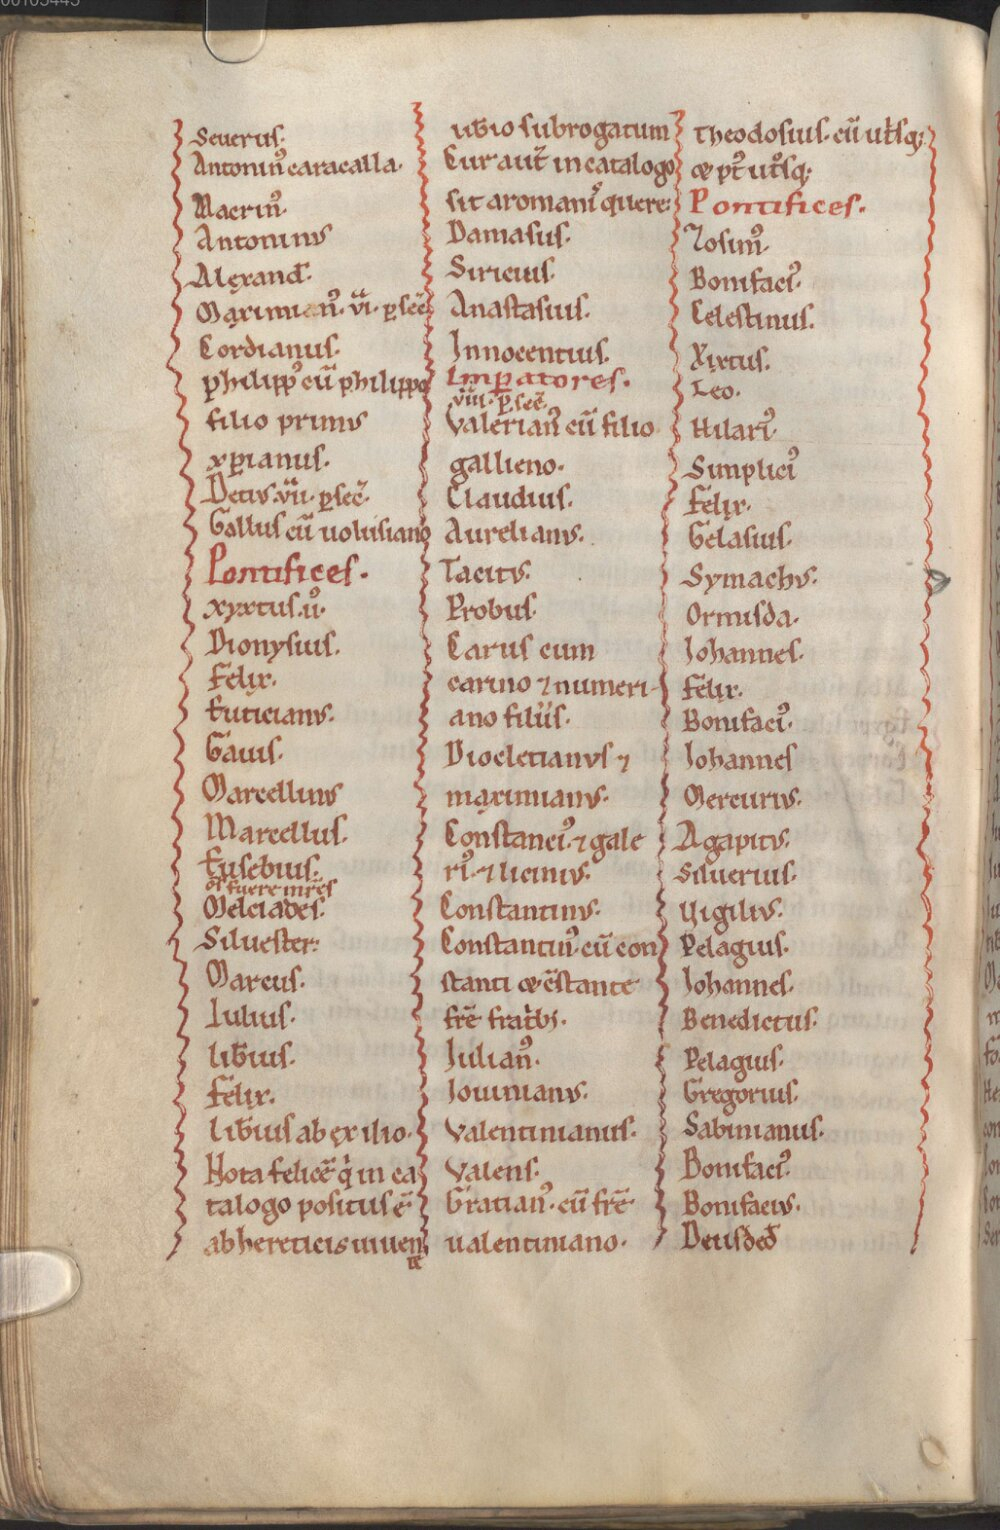 Seuerus.
Antonin᾽ caracalla.
Macrin᾽.
Antoninus
Alexand̄.
Maximian᾽. vi. ꝑsec̄
Cordianus.
philipp᾽ cū philippo
filio primus
xp̄ianus.
Decius. vii. ꝑsec̄.
Gallus cū uolusiano
Pontifices.
xyxtus. ii᾽.
Dionysius.
Felix.
Euticianus.
Gaius.
Marcellinus
Marcellus.
Eusebius.
om̄s fuere mr̄es
Melciades.
Siluester.
Marcus.
Iulius.
lib̄ius.
Felix.
lib̄ius ab exilio.
Nota felicē q̇ in ca
talogo positus ē
ab hereticis iuuen
te
ub̄io subrogatum
Cur aut̄ in catalogo
sit a romanis quere.
Damasus.
Siricius.
Anastasius.
Innocentius.
Imꝑatores.
viii. ꝑsec̄.
Valerian᾽ cū filio
gallieno.
Claudius.
Aurelianus.
Tacitus.
Probus.
Carus cum
carino ⁊ numeri
ano filiis.
Diocletianus ⁊
maximianus.
Constanci᾽. ⁊ gale
ri᾽. ⁊ licinius.
Constantinus.
Constantin᾽. cū con
stanti & cōstante
fr̄e fratrib;.
Iulian᾽.
Iouinianus.
Valentinianus.
Valens.
Gratian᾽. cū fr̄e
ualentiniano.
Theodosius. cū ut̄sq;
& pt̄ ut̄sq;
Pontifices.
Zosim᾽.
Bonifaci᾽.
Celestinus.
Xixtus.
Leo.
Hilari᾽.
Simplici᾽
Felix.
Gelasius.
Symachus.
Ormisda.
Iohannes.
Felix.
Bonifaci᾽.
Iohannes
Mercurius.
Agapitus.
Siluerius.
Vigilius.
Pelagius.
Iohannes.
Benedictus.
Pelagius.
Gregorius.
Sabinianus.
Bonifaci᾽.
Bonifacius.
Deusded̄